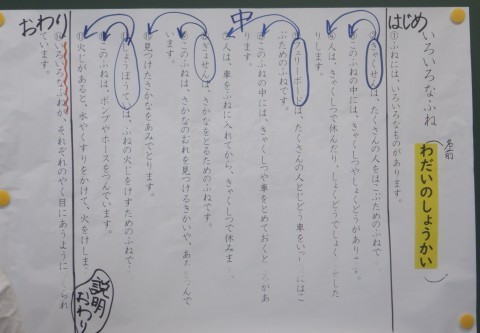 はじめ
中
おわり
いろいろなふね
名前
わだいのしょうかい
①ふねには、いろいろなものがあります。
②きゃくせんは、たくさんの人をはこぶためのふねで
③このふねの中には、きゃくしつやしょくどうがあります。
④人は、きゃくしつで休んだり、しょくどうでしょくじをした
りします。
⑤フェリーボートは、たくさんの人とじどう車をいっしょにはこ
ぶためのふねです。
⑥このふねの中には、きゃくしつや車をとめておくところがあ
ります。
⑦人は、車をふねに入れてから、きゃくしつで休みま
⑧ぎょせんは、さかなをとるためのふねです。
⑨このふねは、さかなのむれを見つけるきかいや、あみをつんで
います。
⑩見つけたさかなをあみでとります。
⑪しょうぼうていは、ふねの火じをけすためのふねで
⑫このふねは、ポンプやホースをつんでいます。
⑬火じがあると、水やくすりをかけて、火をけしま
⑭いろいろなふねが、それぞれのやく目にあうように
ています。
説明おわり